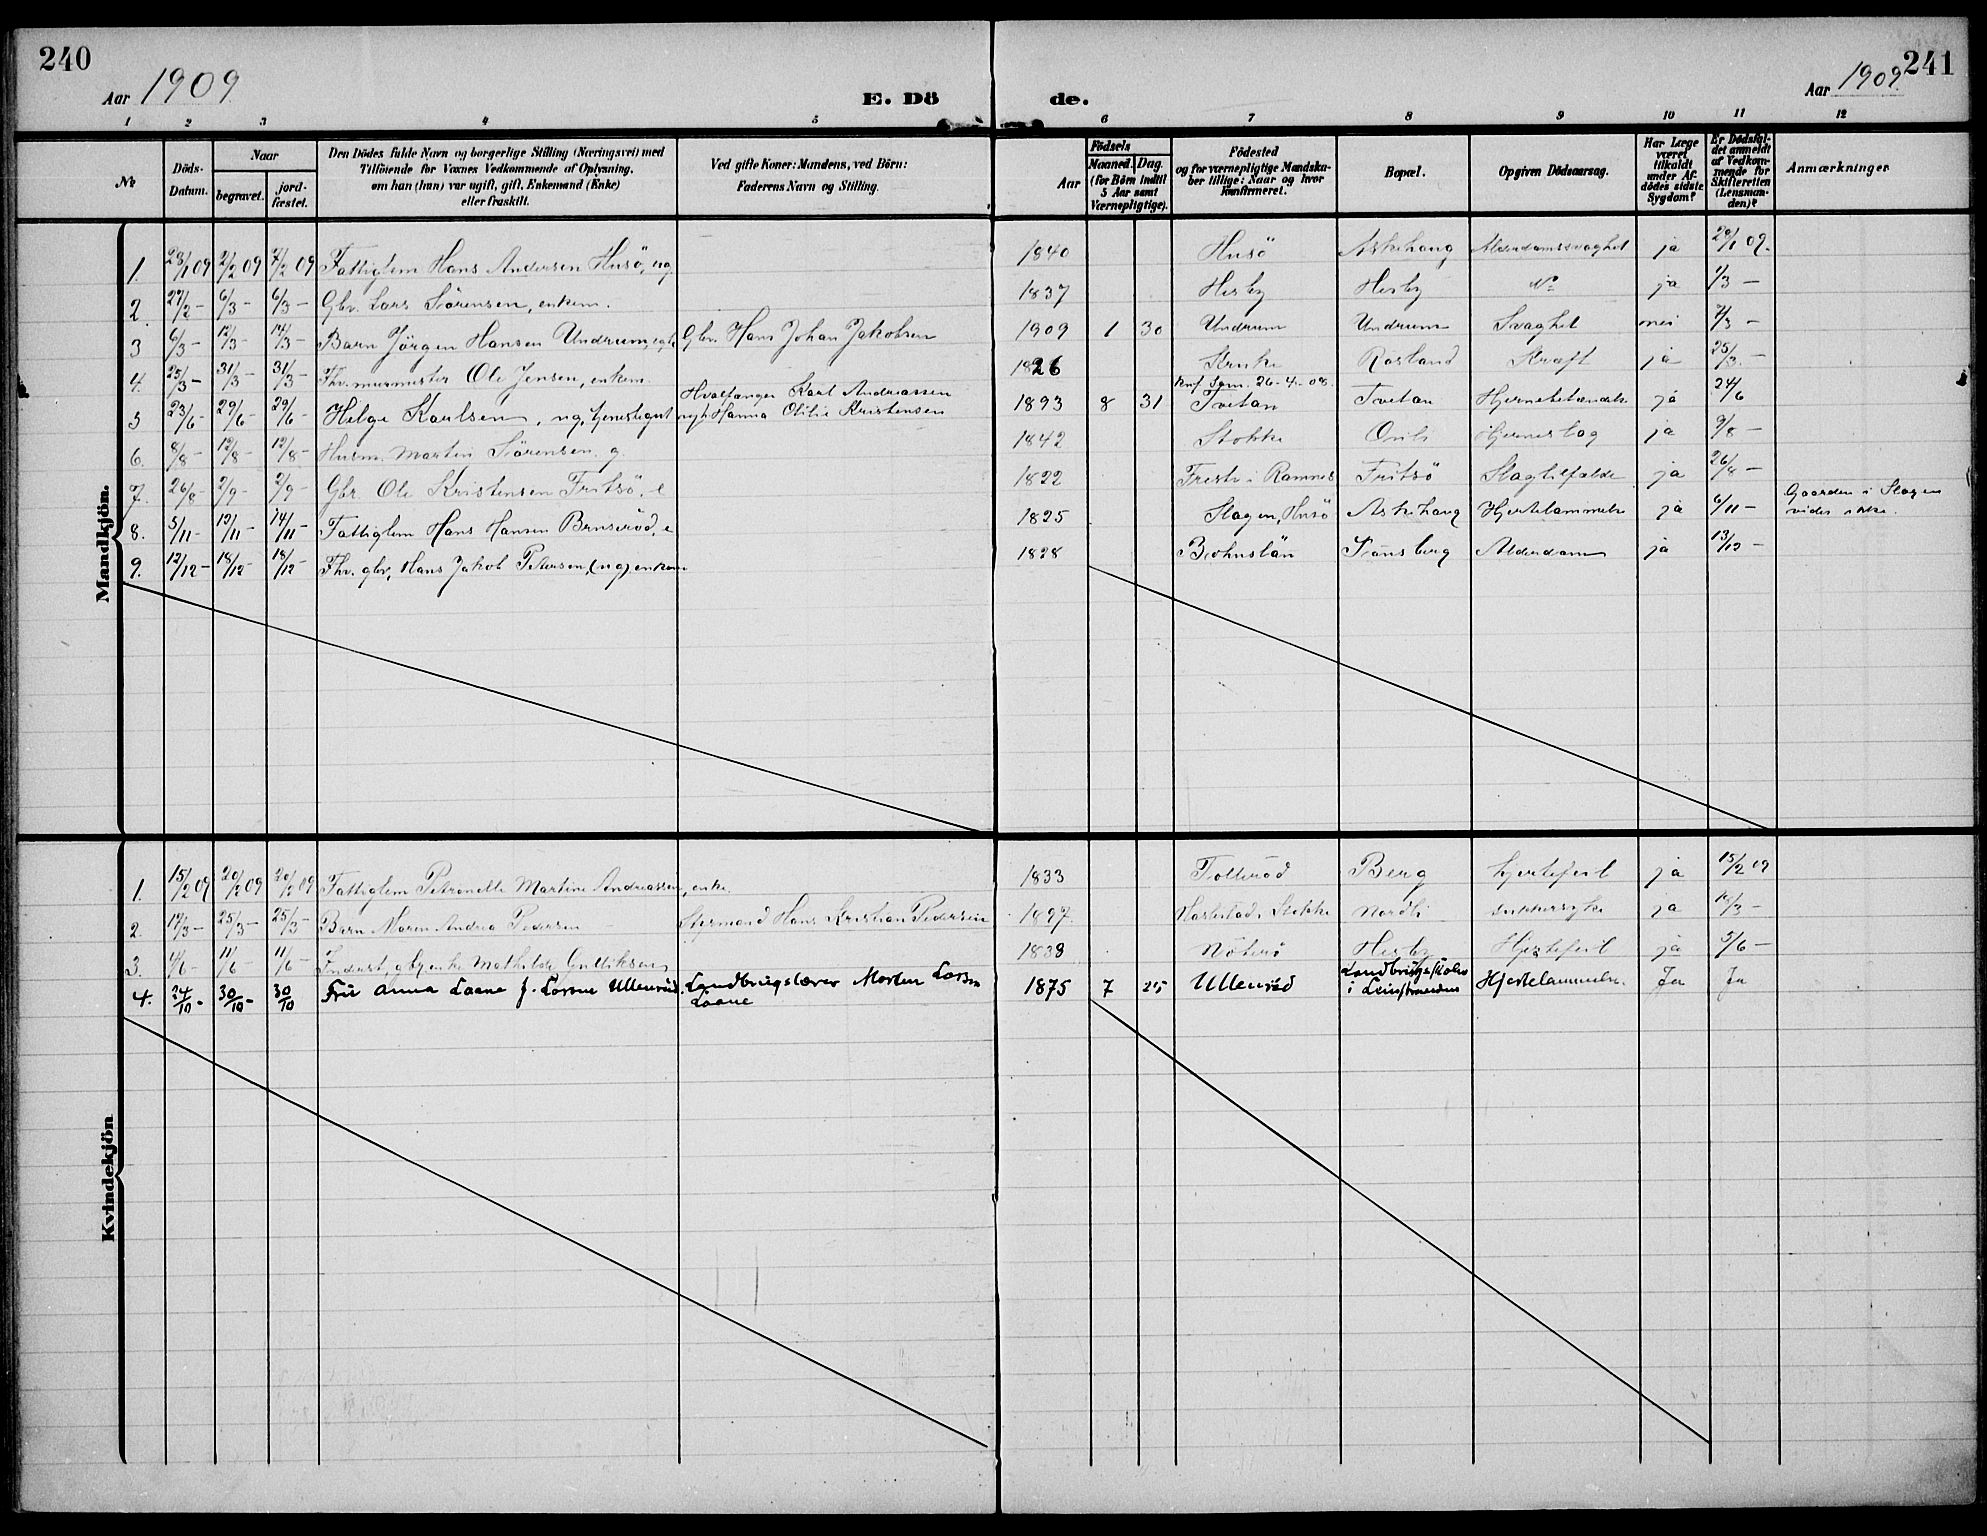 240
Aar 1909
E. Dö
1 2 3 4 5
№
Döds-Datum.
Naar
begravet.
jord-fæstet.
Den Dödes fulde Navn og borgerlige Stilling (Næringsvei) med
Tilföiende for Voxnes Vedkommende af Oplysning,
om han (hun) var ugift, gift, Enkemand (Enke)
eller fraskilt.
Ved gifte Koner: Mandens, ved Börn:
Faderens Navn og Stilling.
Mandkjön.
1. 28/1 09 2/2 09 7/2 09 Fattiglem Hans Andersen Husö, ug.
2. 27/2 – 6/3 – 6/3 – Gbr. Lars Sörensen, enkem.
3 6/3 – 12/3 – 14/3 – Barn Jörgen Hansen Undrum, egte Gbr. Hans Johan Jakobsen
4. 25/3 – 31/3 – 31/3 – Fhv. murmester Ole Jensen, enkem.
Hvalfanger Karl Andreassen
5 23/6 – 29/6 – 29/6 – Helge Karlsen, ug, tjenestegut Hanna Otilie Kristensen
6. 8/8 – 12/8 – 12/8 – Husm. Martin Sörensen, g.
7. 26/8 – 2/9 – 2/9 – Gbr. Ole Kristensen Fritsö, e
8. 5/11 – 12/11 – 14/11 Fattiglem Hans Hansen e
9. 12/12 – 18/12 – 18/12 – Fhv. gbr, Hans Jakob Petersen, (ug) enkem
Kvindekjön
1. 15/2 09 20/2 09 20/2 09 Fattiglem Petronelle Martine Andreassen, enke.
2. 19/3 – 25/3 – 25/3 – Barn Maren Andrea Pedersen – Hans Kristian Pedersen
3. 4/6 – 11/6 – 11/6 – Inderst, gbrenke Mathilde Gulliksen
4. 24/10 – 30/10 – 30/10 Fru Anna Laane f. Larsen Ullenröd. Landbrugslærer Morten Larsen
Laane
241
Aar 1909.
de.
6 7 8 9 10 11 12
Aar
Födsels
Maaned. Dag.
(for Börn indtil
5 Aar samt
Værnepligtige).
Födested
og for værnepligtige Mandska-
ber tillige: Naar og hvor
konfirmeret.
Bopæl.
Opgiven Dödsaarsag.
Har Læge
været
tilkaldt
under Af-
dödes sidste
Sygdom?
Er Dödsfal-
det anmeldt
af Vedkom-
mende for
Skifteretten
(Lensman-
den)?
Anmærkninger
1840 Husö Askehaug Alderdomssvaghet ja 29/1 09.
1837 Hesby Hesby ja 1/3 –
1909 1 30 Undrum Undrum Svaghet nei 7/3 –
1826 Rosland Kræft ja 25/3. –
Knf. Sem. 26-4-08.
1893 8 31 Tvetan Tvetan Hjernebetændelse ja 24/6
1842 Stokke Hjerneslag ja 9/8 –
1822 i Ramnes Fritsö Slagtilfælde ja 26/8 –
1825 Slagen, Husö Askehaug Hjertelammelse ja 6/11 – Gaarden i Slagen
vides ikke.
1828 Bohuslän Tönsberg Alderdom ja 13/12 –
1833 Tolleröd Berg hjertefeil ja 15/2 09
1897. Stokke Nordli sukkersyke ja 19/3 –
1838 Nöterö Hesby Hjertefeil ja 5/6 –
1875 7 25 Ullenröd Landbrugsskolen Hjertelammelse. Ja Ja
i Leinstranden